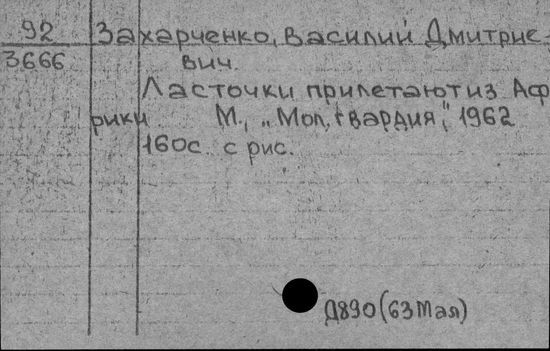 92 Захарченко, Василий Дмитрие-
3666 вич.
Ласточки прилетают из Аф
рики М., „Мол. гвардия", 1962
160с. с рис.
Д890 (63 Мая)